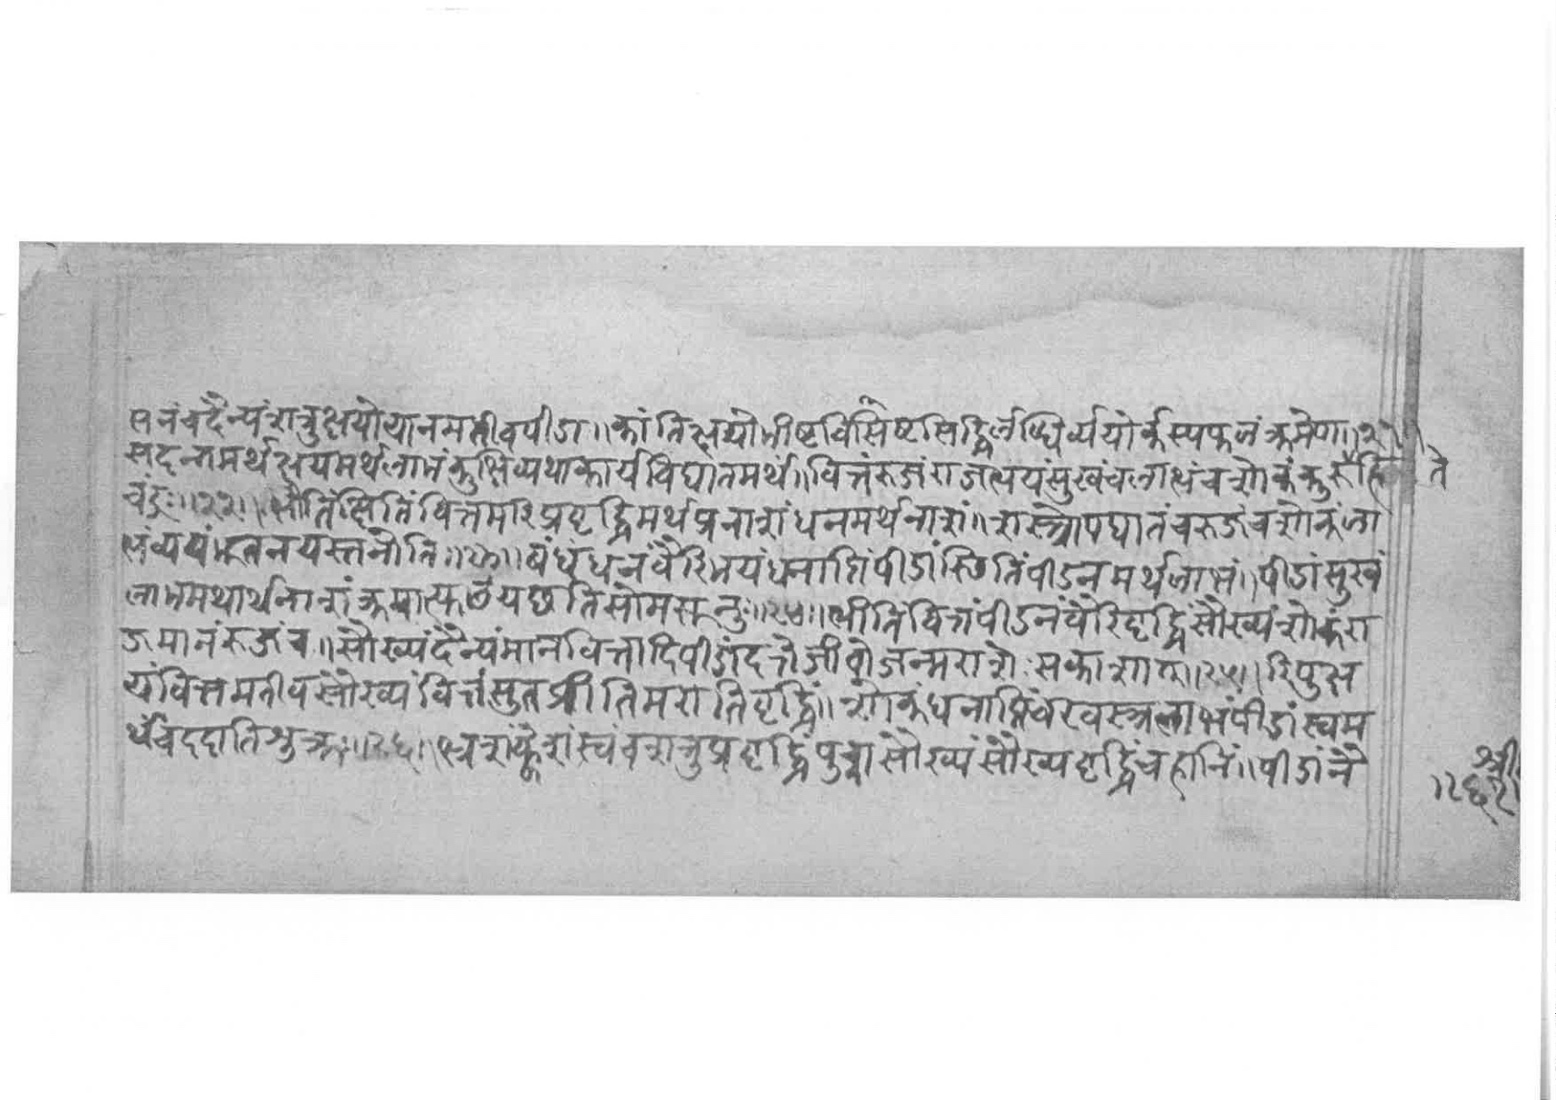 धनंचदैन्यंशत्रुक्षयोयानमतीवपीडा॥ कांतिक्षयोभीष्टविसिष्टसिद्धिर्लब्धिर्व्ययोर्कस्यफलंक्रमेण॥२२॥
सदन्नमर्थक्षयमर्थलाभंकुक्षिव्यथाकार्यविघातमर्थं॥वित्तंरुजंराजभयंसुखंचलाभंचशोकंकुरुते
चंद्रः॥२३॥ भीतिंक्षितिंवित्तमरिप्रवृद्धिमर्थप्रनाशंधनमर्थनाशं॥ शस्त्रोपघातंचरुजंचशोकंला
भंव्ययंभूतनयस्तनोति॥ बंधंधनंवैरिभयंधनाप्तिंपीडांस्थितिंपीडनमर्थलाभं॥ पीडांसुखं
लाभमथार्थनाशंक्रमात्फलंयछतिसोमसूनुः॥२४॥ भीतिंवित्तंपीडनंवैरिवृद्धिंसौख्यंशोकंरा
जमानंरुजंच॥ सौख्यंदैन्यंमानवित्तादिपीडांदत्तेजीवोजन्मराशेःसकाशात्॥२५॥ रिपुक्ष
यंवित्तमतीवसौख्यंवित्तंसुतप्रीतिमरातिवृद्धिं॥ शोकंधनाप्तिंवरवस्त्रलाभंपीडांस्वम
र्थंचददातिशुक्रः॥२६॥ भ्रंशंक्लेशंस्वंचशत्रुप्रवृद्धिंपुत्रासौख्यंसौख्यवृद्धिंचहानिं॥ पीडांनै
श्री